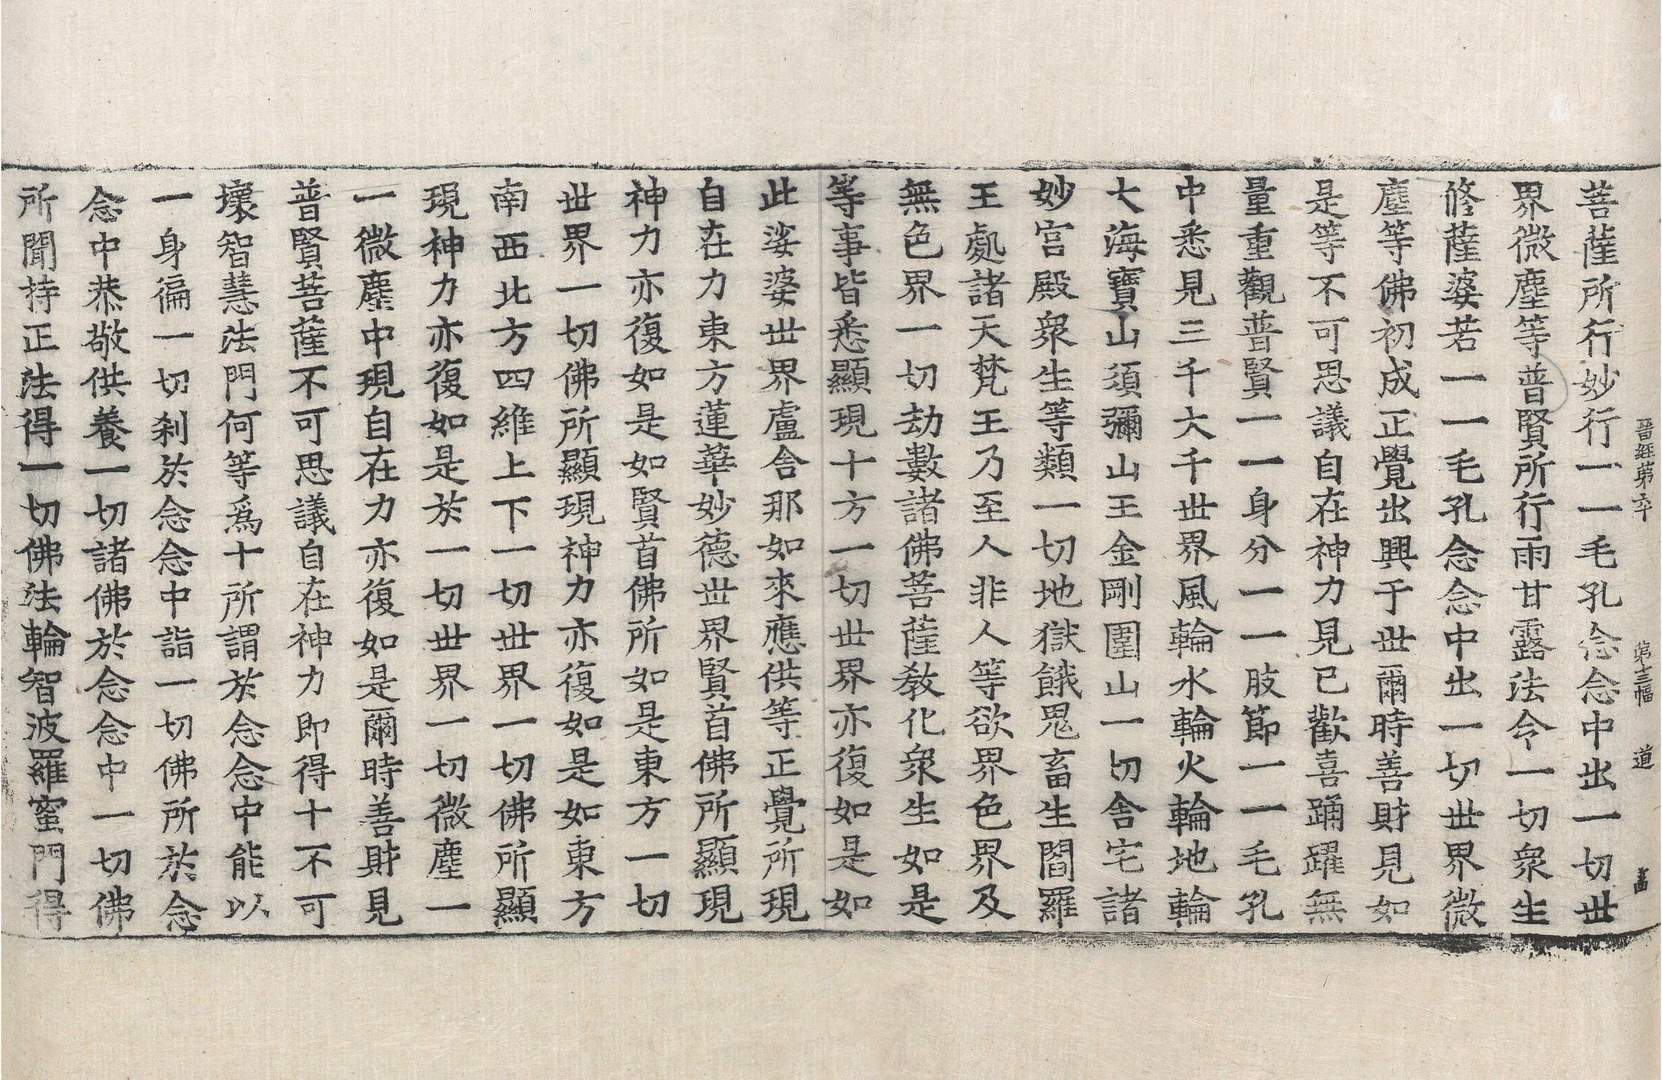 晉經第六十　第十三幅　道
菩薩所行妙行一一毛孔念念中出一切世
界微塵等普賢所行雨甘露法令一切衆生
修薩婆若一一毛孔念念中出一切世界微
塵等佛初成正覺出興于世爾時善財見如
是等不可思議自在神力見已歡喜踊躍無
量重觀普賢一一身分一一肢節一一毛孔
中悉見三千大千世界風輪水輪火輪地輪
大海寶山須彌山王金剛圍山一切舎宅諸
妙宮殿衆生等類一切地獄餓鬼畜生閻羅
王處諸天梵王乃至人非人等欲界色界及
無色界一切劫數諸佛菩薩教化衆生如是
等事皆悉顯現十方一切世界亦復如是如
此娑婆世界盧舎那如來應供等正覺所現
自在力東方蓮華妙德世界賢首佛所顯現
神力亦復如是如賢首佛所如是東方一切
世界一切佛所顯現神力亦復如是如東方
南西北方四維上下一切世界一切佛所顯
現神力亦復如是於一切世界一切微塵一
一微塵中現自在力亦復如是爾時善財見
普賢菩薩不可思議自在神力即得十不可
壞智慧法門何等爲十所謂於念念中能以
一身徧一切刹於念念中詣一切佛所於念
念中恭敬供養一切諸佛於念念中一切佛
所聞持正法得一切佛法輪智波羅蜜門得